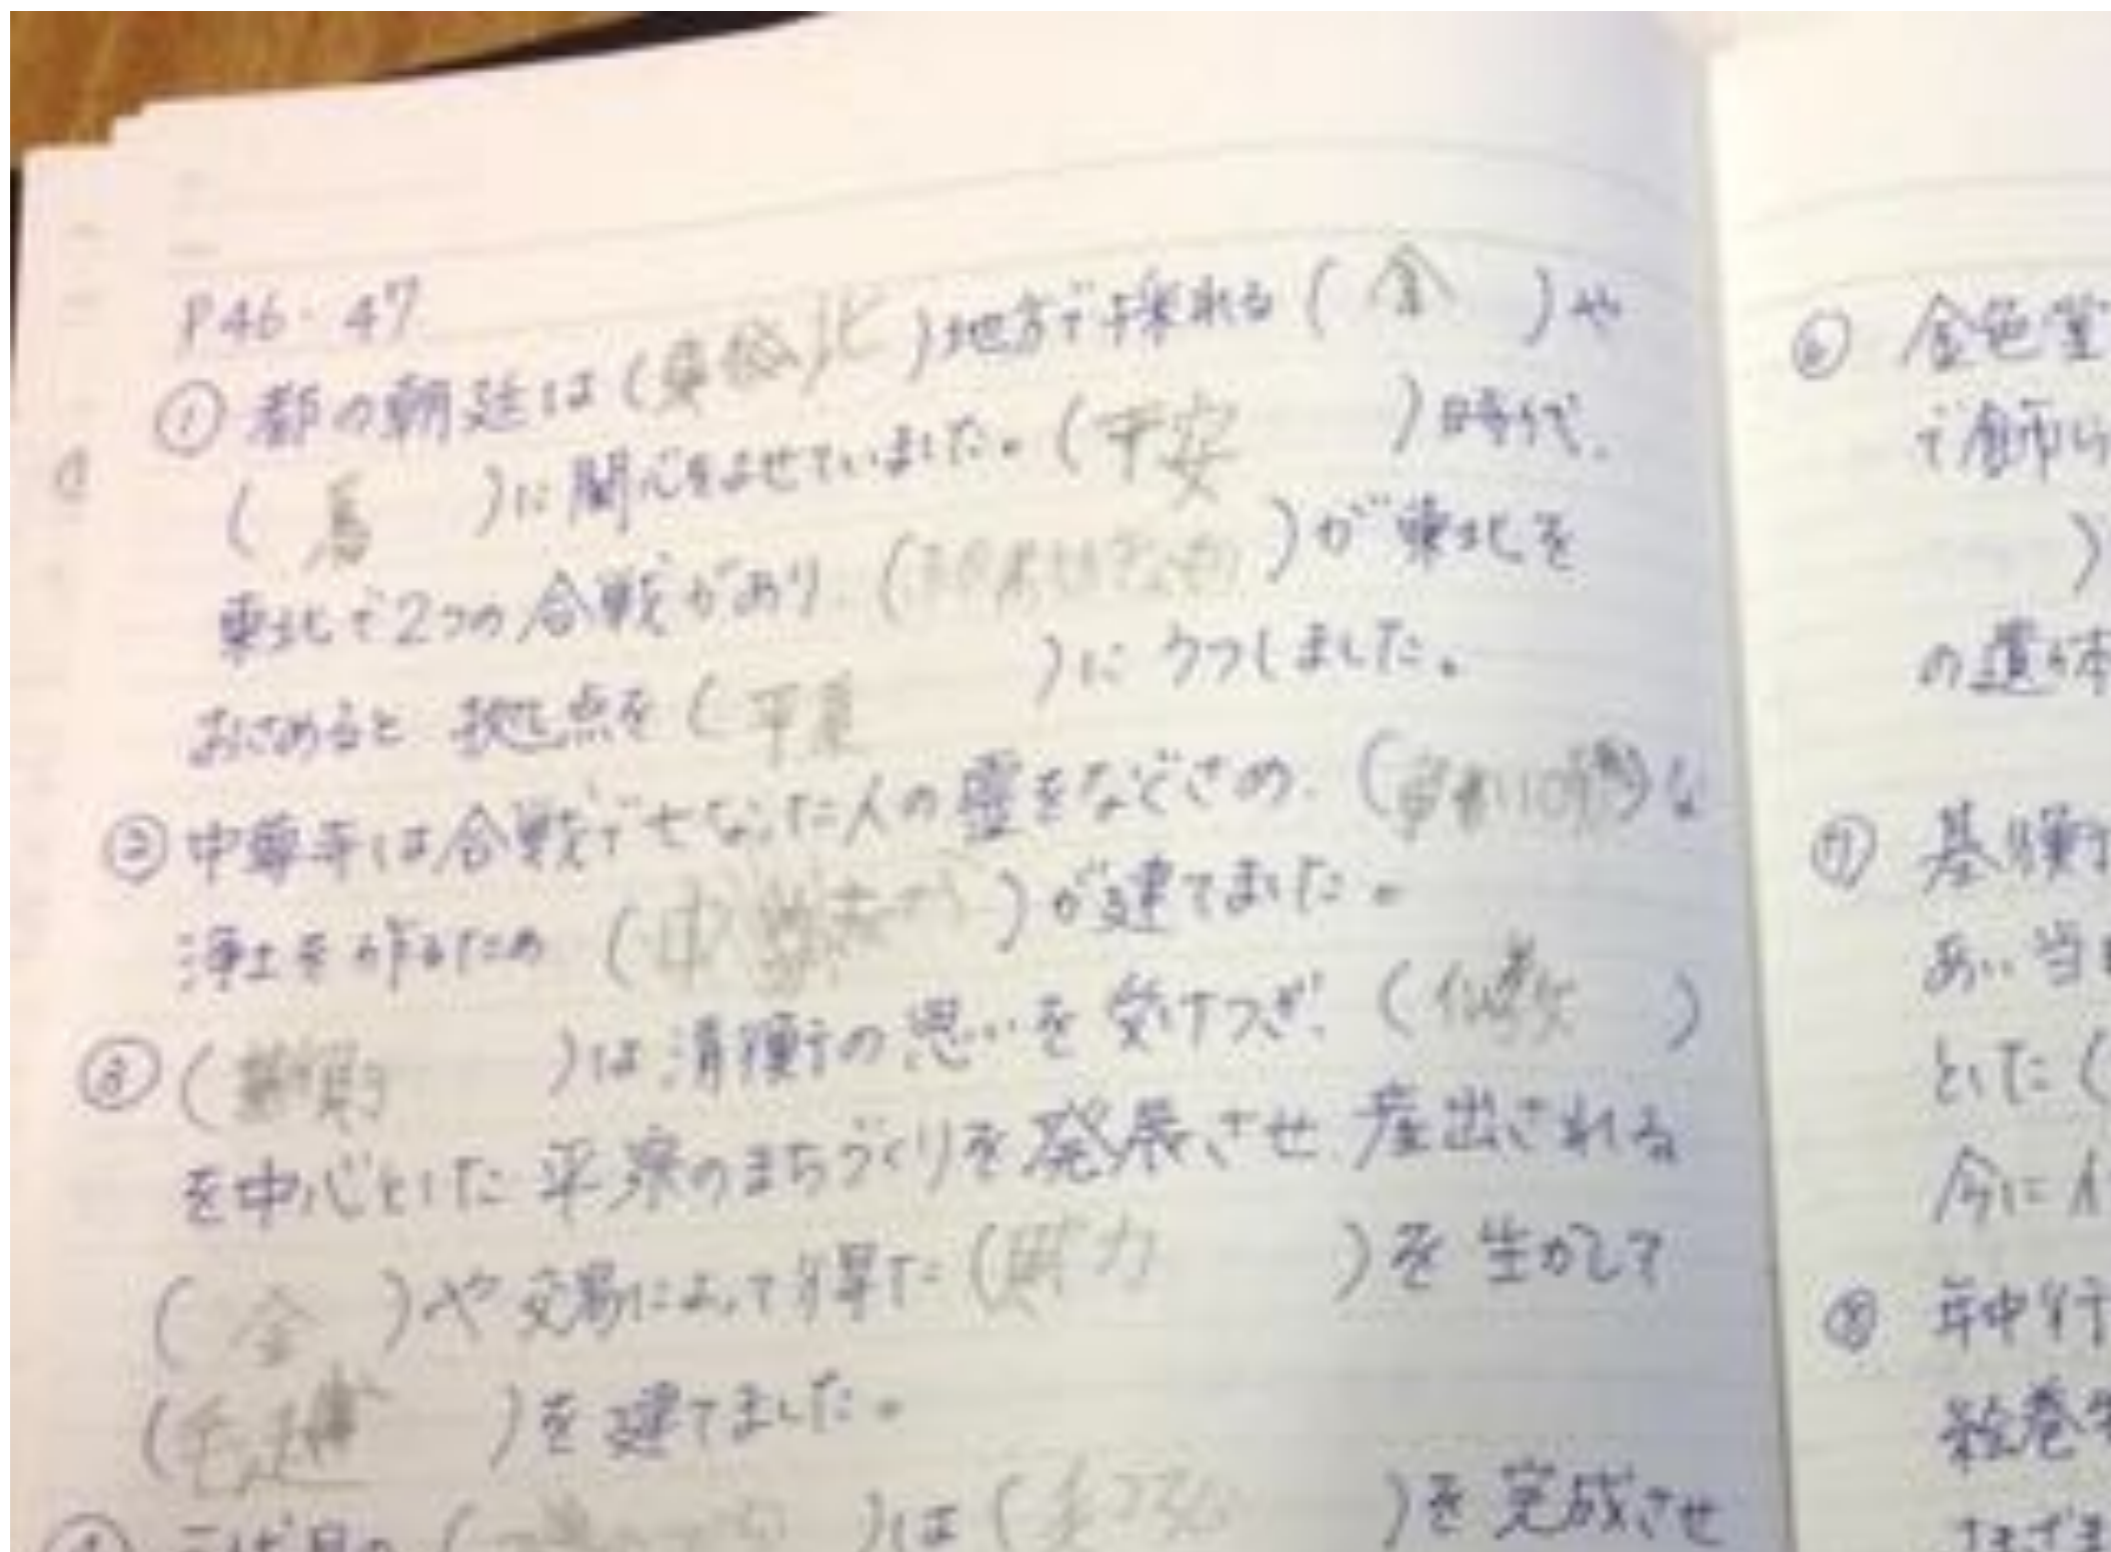 P46・47
① 都の朝廷は(東北)地方で採れる(金)や
(馬)に関心をよせていました。(平安)時代、
東北で2つの合戦があり、( )が東北を
おさめると拠点を(平泉)にうつしました。
② 中尊寺は合戦で亡なった人の霊をなぐさめ、( )な
浄土を作るため( )が建てました。
③ ( )は清衡の思いを受けつぎ、(仏教)
を中心とした平泉のまちづくりを発展させ産出される
(金)や交易によって得た(財力)を生かして
(毛越)を建てました。
( )は( )を完成させ
⑥ 金色堂
で飾ら
)
の遺体
⑦ 基衡
あい当
とした(
今に
⑧ 年中行
絵巻
さまざま